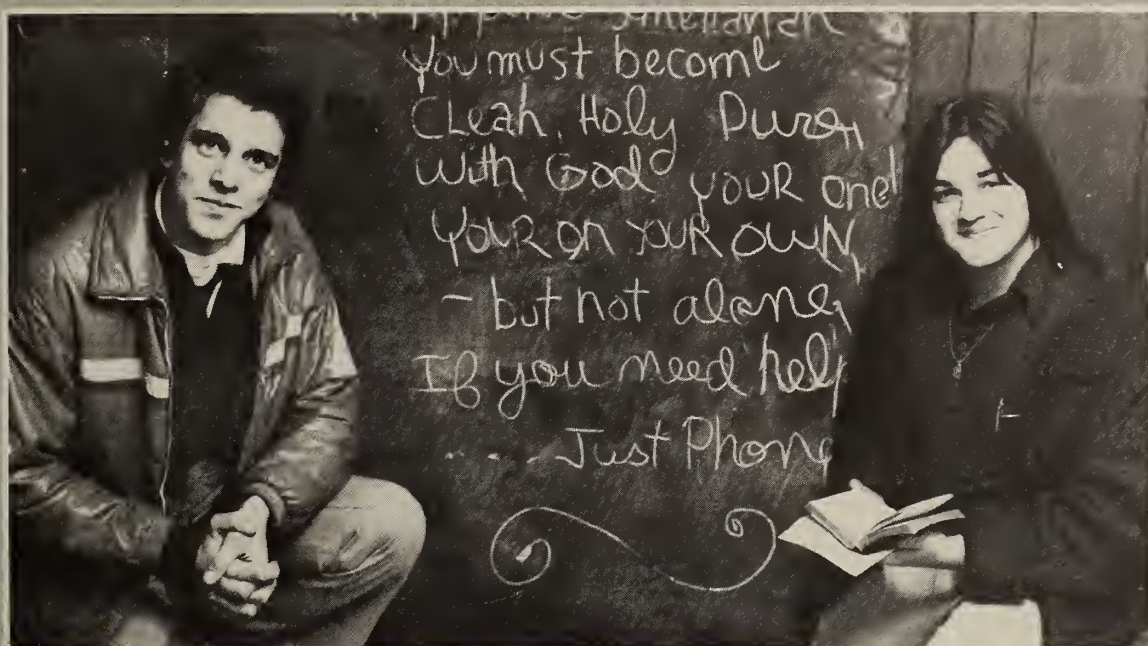 You must become
CLeah, Holy Puren
with God your one!
YOUR on YOUR OWN,
- but not alone,
If you need help
.... Just Phone